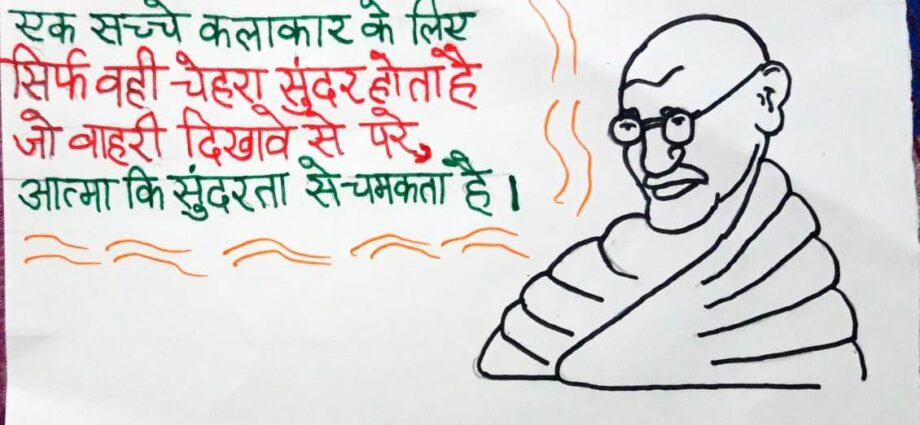 एक सच्चे कलाकार के लिए
सिर्फ वही चेहरा सुंदर होता है
जो बाहरी दिखावे से परे,
आत्मा कि सुंदरता से चमकता है।